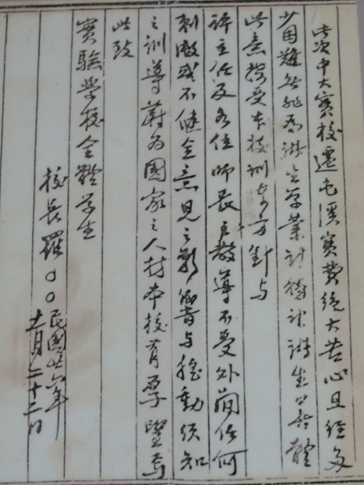 此次中大實校遷屯溪實費絕大苦心且經多
少困難無非為諸生學業計務望諸生其各體
此意接受本校訓育方針與
許主任及各位師長之教導不受外間任何
刺激或不健全意見之影響與搖動須知
之訓導蔚為國家之人材本校有厚望焉
此致
實驗學校全體學生
校長羅〇〇民國廿六年
十一月二十二日